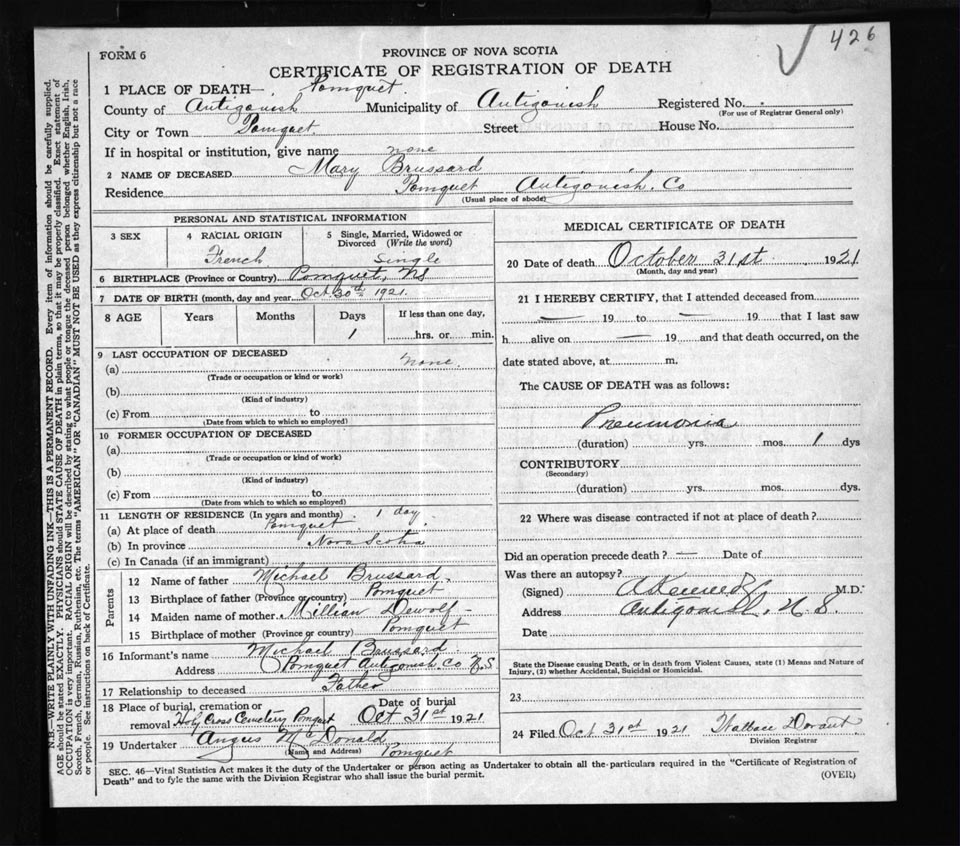 426
FORM 6
PROVINCE OF NOVA SCOTIA
CERTIFICATE OF REGISTRATION OF DEATH
1 PLACE OF DEATH— Pomquet
County of Antigonish Municipality of Antigonish Registered No.
(For use of Registrar General only)
City or Town Pomquet Street House No.
If in hospital or institution, give name none
2 NAME OF DECEASED Mary Brussard
Residence Pomquet Antigonish. Co
(Usual place of abode)
PERSONAL AND STATISTICAL INFORMATION
3 SEX 4 RACIAL ORIGIN 5 Single, Married, Widowed or Divorced (Write the word)
French Single
6 BIRTHPLACE (Province or Country) Pomquet, NS
7 DATE OF BIRTH (month, day and year) Oct 30th 1921
8 AGE Years Months Days If less than one day,
1 hrs. or min.
9 LAST OCCUPATION OF DECEASED none.
(a)
(Trade or occupation or kind or work)
(b)
(Kind of industry)
(c) From to
(Date from which to which so employed)
10 FORMER OCCUPATION OF DECEASED
(a)
(Trade or occupation or kind of work)
(b)
(Kind of industry)
(c) From to
(Date from which to which so employed)
11 LENGTH OF RESIDENCE (In years and months) 1 day
(a) At place of death Pomquet
(b) In province Nova Scotia
(c) In Canada (if an immigrant)
Parents
12 Name of father Michael Brussard.
13 Birthplace of father (Province or country) Pomquet
14 Maiden name of mother. Millian Dewolf
15 Birthplace of mother (Province or country) Pomquet
16 Informant's name Michael Brussard
Address Pomquet Antigonish. Co N.S
17 Relationship to deceased Father
18 Place of burial, cremation or removal Holy Cross Cemetery Pomquet Date of burial Oct 31st 1921
19 Undertaker Angus McDonald
(Name and Address) Pomquet
MEDICAL CERTIFICATE OF DEATH
20 Date of death October 31st 1921
(Month, day and year)
21 I HEREBY CERTIFY, that I attended deceased from
— 19 to — 19 that I last saw
h alive on — 19 and that death occurred, on the
date stated above, at m.
The CAUSE OF DEATH was as follows:
Pneumonia
(duration) yrs. mos. 1 dys
CONTRIBUTORY
(Secondary)
(duration) yrs. mos. dys.
22 Where was disease contracted if not at place of death?
Did an operation precede death? — Date of
Was there an autopsy?
(Signed) M.D.
Address Antigonish, N.S.
Date
State the Disease causing Death, or in death from Violent Causes, state (1) Means and Nature of
Injury, (2) whether Accidental, Suicidal or Homicidal.
23
24 Filed Oct 31st 1921 Wallace
Division Registrar
SEC. 46—Vital Statistics Act makes it the duty of the Undertaker or person acting as Undertaker to obtain all the particulars required in the "Certificate of Registration of
Death" and to fyle the same with the Division Registrar who shall issue the burial permit.
(OVER)
N.B.—WRITE PLAINLY WITH UNFADING INK—THIS IS A PERMANENT RECORD. Every item of information should be carefully supplied.
AGE should be stated EXACTLY. PHYSICIANS should STATE CAUSE OF DEATH in plain terms, so that it may be properly classified. Exact statement of
OCCUPATION is very important. RACIAL ORIGIN will be described by stating to what people or tongue the deceased person belonged whether English, Irish,
Scotch, French, German, Russian, Ruthenian, etc. The terms "AMERICAN" OR "CANADIAN" MUST NOT BE USED as they express citizenship but not a race
or people. See instructions on back of Certificate.